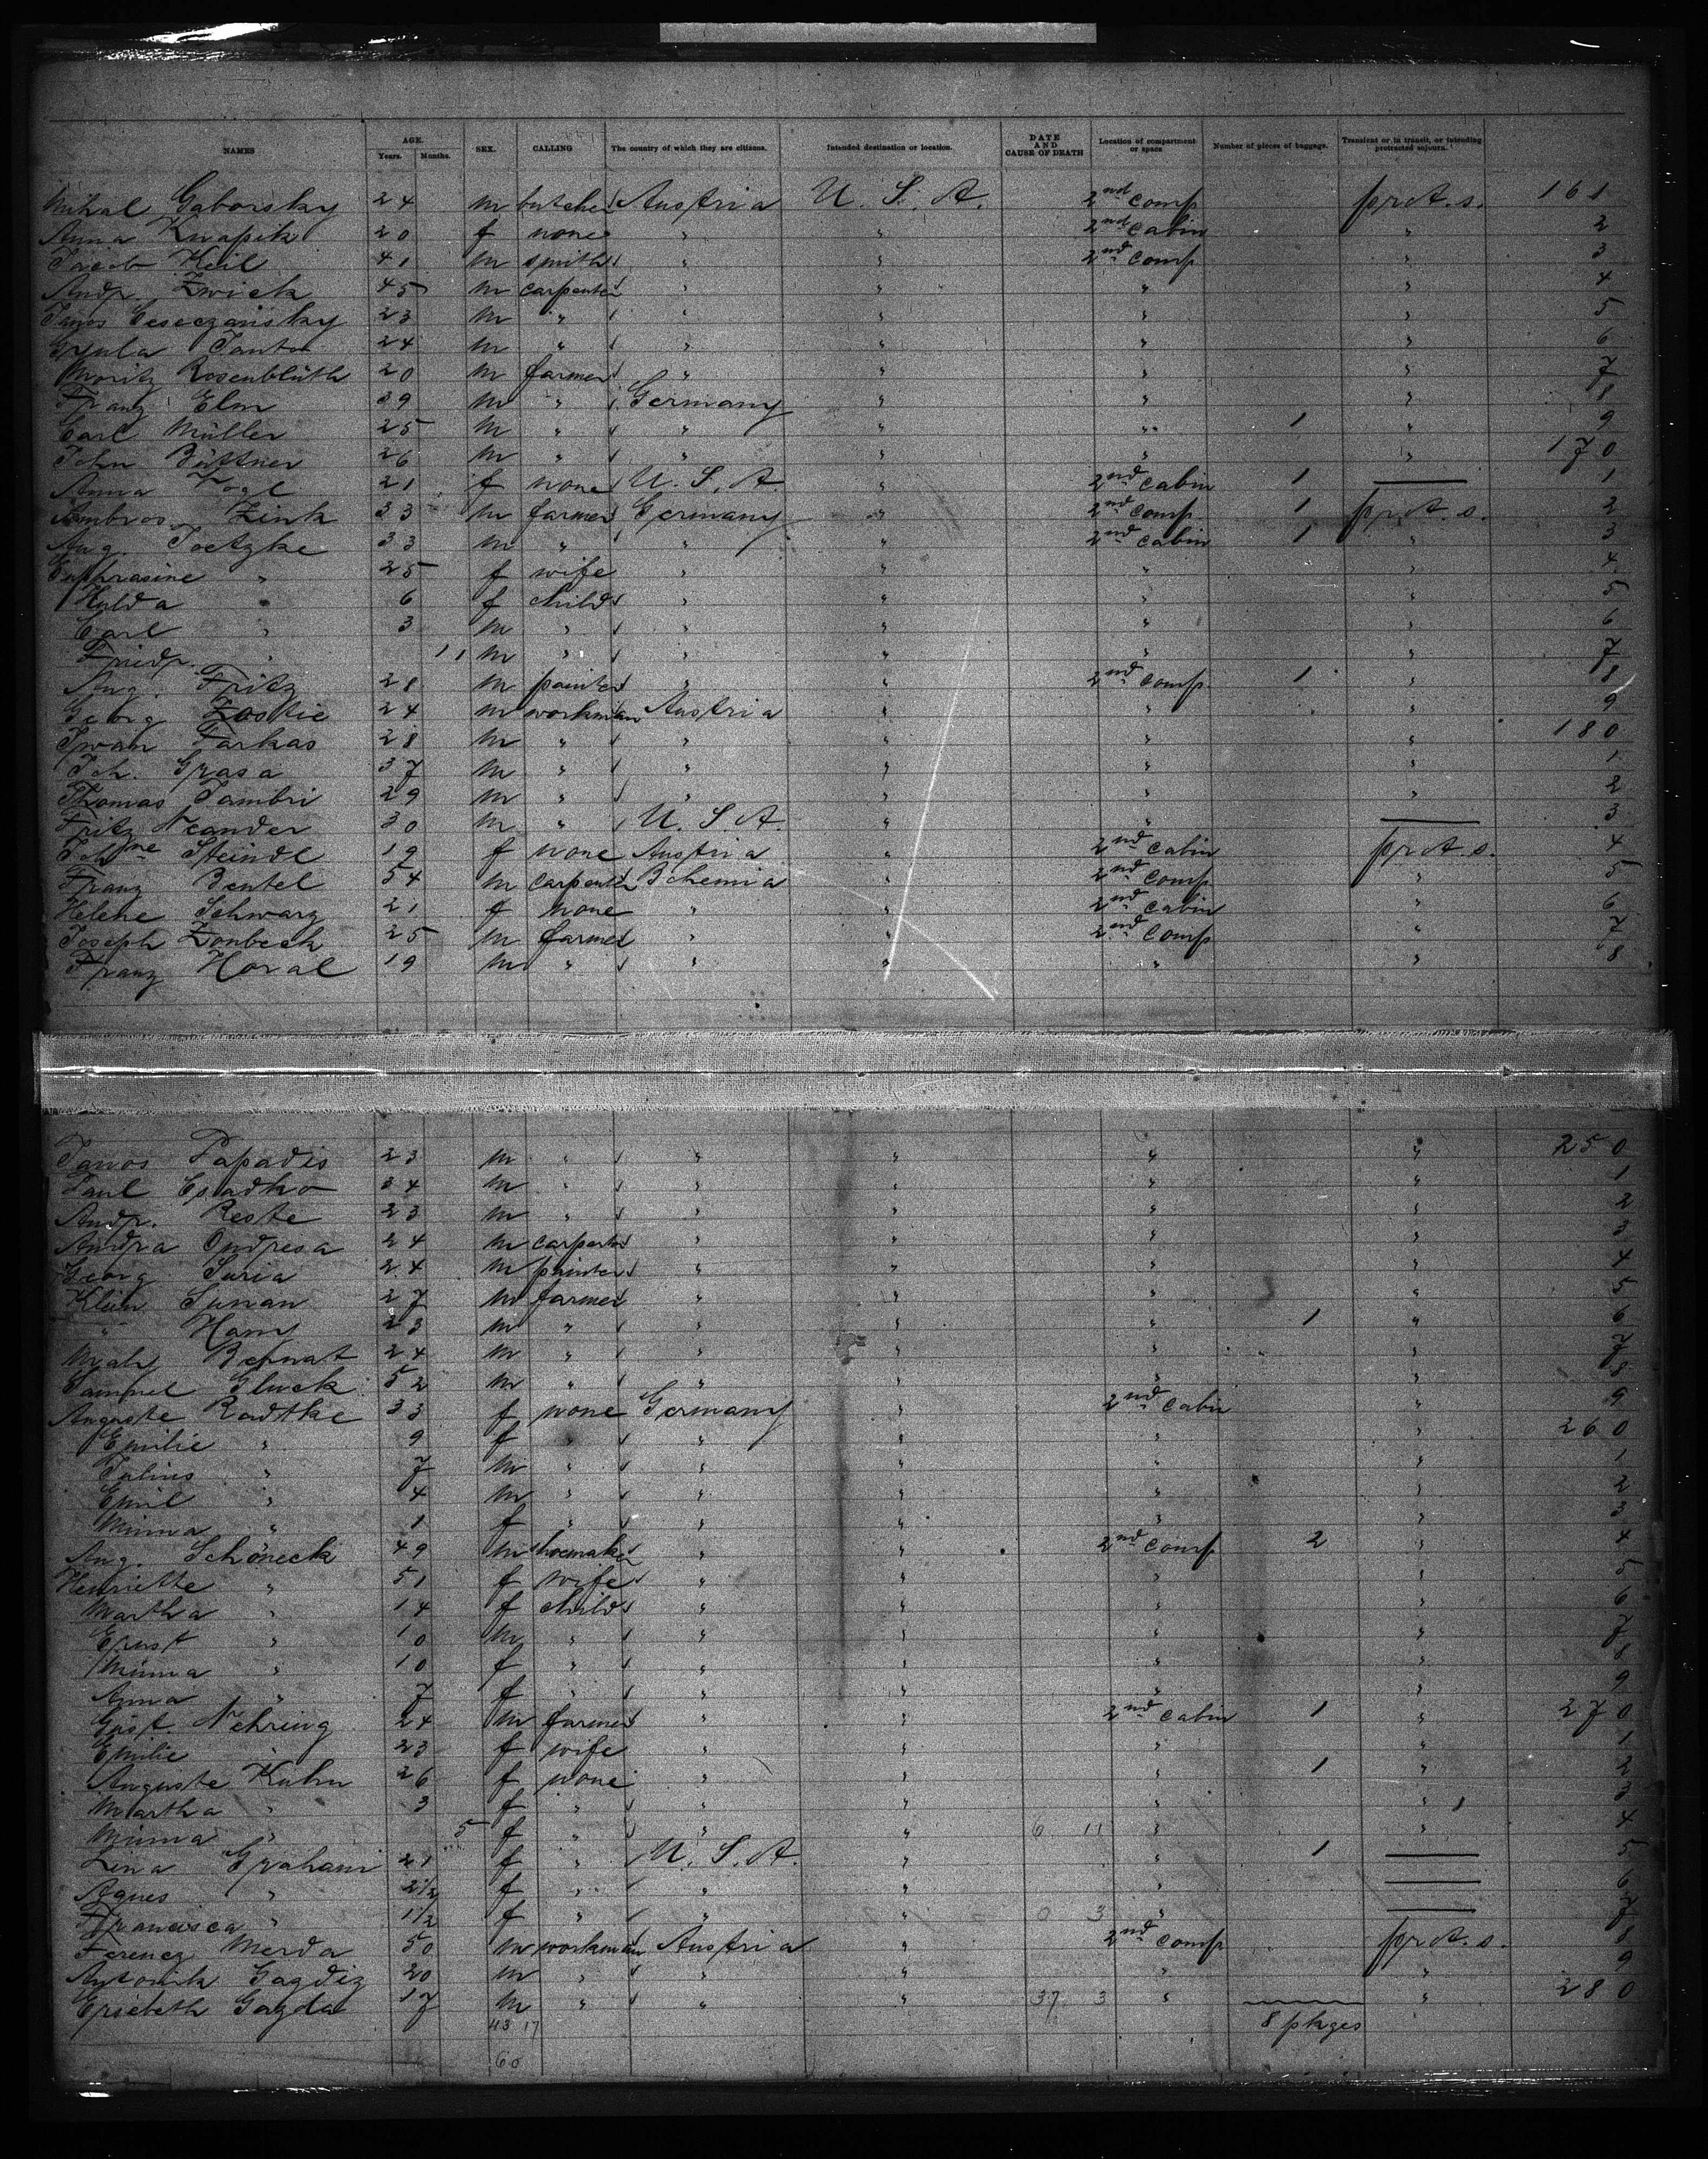 NAMES AGE. Years. Months. SEX. CALLING The country of which they are citizens. Intended destination or location. DATE AND CAUSE OF DEATH Location of compartment or space Number of pieces of baggage. Transient or in transit, or intending protracted sojourn.
Mihal Gaborsky 24 m butcher Austria U. S. A. 2nd comp prA.s. 161
Anna Knapik 20 f none " " 2nd cabin " 2
Jacob Keil 41 m smith " " 2nd comp " 3
Andr. Zwick 45 m carpenter " " " " 4
Janos 23 m " " " " " 5
Gyula Janto 24 m " " " " " 6
Moritz Rosenblüth 20 m farmer " " " " 7
Franz Elm 39 m " Germany " " " 8
Carl Müller 25 m " " " " 1 " 9
John Büttner 26 m " " " " " 170
Anna Vogl 21 f none U. S. A. " 2nd cabin 1 — 1
Ambros Zink 33 m farmer Germany " 2nd comp 1 prA.s. 2
Aug. Joetzke 33 m " " " 2nd cabin 1 " 3
Euphrasine " 25 f wife " " " " 4
Hulda " 6 f child " " " " 5
Carl " 3 m " " " " " 6
Friedr. " 11 m " " " " " 7
Aug. Fritz 28 m painter " " 2nd comp 1 " 8
Georg Zostic 24 m workman Austria " " " 9
Iwan Farkas 28 m " " " " " 180
Joh. Grasa 37 m " " " " " 1
Thomas Tambri 29 m " " " " " 2
Fritz Neander 30 m " U. S. A. " " — 3
Johne Steindl 19 f none Austria " 2nd cabin prA.s. 4
Franz Bentel 54 m carpenter Bohemia " 2nd comp " 5
Helene Schwarz 21 f none " " 2nd cabin " 6
Joseph Zonbeck 25 m farmer " " 2nd comp " 7
Franz Horal 19 m " " " " " 8
Janos Papadis 23 m " " " " " 250
Paul 34 m " " " " " 1
Andr. Reste 23 m " " " " " 2
Andra Ondresa 24 m carpenter " " " " 3
Georg Suria 24 m painter " " " " 4
Klein Sunan 27 m farmer " " " " 5
" Hany 23 m " " " " 1 " 6
24 m " " " " " 7
Samuel Gluck 52 m " " " " " 8
Auguste Radtke 33 f none Germany " 2nd cabin " 9
Emilie " 9 f " " " " " 260
Julius " 7 m " " " " " 1
Emil " 4 m " " " " " 2
Minna " 1 f " " " " " 3
Aug. Schöneck 49 m shoemaker " " 2nd comp 2 " 4
Henriette " 51 f wife " " " " 5
Martha " 14 f child " " " " 6
Ernst " 10 m " " " " " 7
Minna " 10 f " " " " " 8
Anna " 7 f " " " " " 9
Gust Nehring 24 m farmer " " 2nd cabin 1 " 270
Emilie " 23 f wife " " " " 1
Auguste Kuhn 26 f none " " " 1 " 2
Martha " 3 f " " " " " 3
Minna " 5 f " " " 6 11 " " 4
Lina Graham 21 f " U. S. A. " " 1 — 5
Agnes " 2 1/2 f " " " " — 6
Francisca " 1 1/2 f " " " 0 3 " — 7
Ferencz Merda 50 m workman Austria " 2nd comp prA.s. 8
Antonik Gagdiz 20 m " " " " " 9
Ersebeth Gagda 17 m " " " 37 3 " " 280
43 17 8 pkges
60